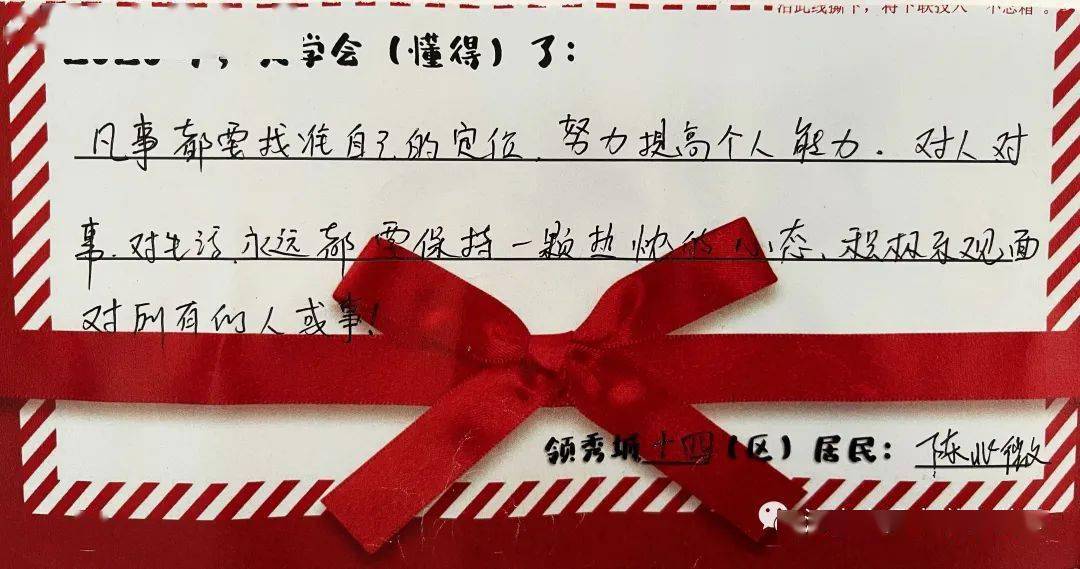 沿此线撕下，将下联投入"不忘箱"。
学会（懂得）了：
凡事都要找准自己的定位、努力提高个人能力．对人对
事、对生活、永远都要保持一颗热忱的心态、积极乐观面
对所有的人或事！
领秀城十四（区）居民：陈业微